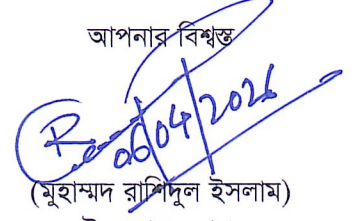 আপনার বিশ্বস্ত
06/04/2026
(মুহাম্মদ রাশিদুল ইসলাম)